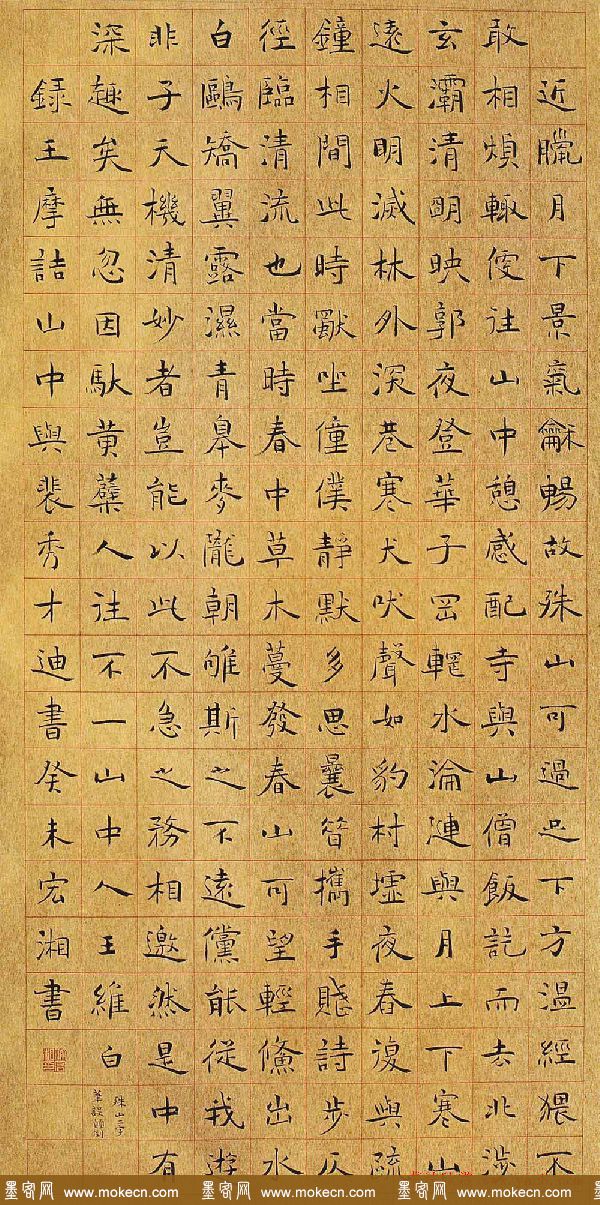 近臘月下景氣龢暢故殊山可過足下方溫經猥不
敢相煩輙便往山中憩感配寺與山僧飯訖而去北涉
玄灞清朙映郭夜登華子岡輞水淪漣與月上下寒山
遠火明滅林外深巷寒犬吠聲如豹村墟夜舂復與疏
鐘相間此時獸坐僮僕靜默多思曩昔攜手賤詩步仄
徑臨清流也當時春中草木蔓發春山可望輕鯈出水
白鷗矯翼露濕青皋麥隴朝雊斯之不遠儻能從我遊
非子天機清妙者豈能以此不急之務相邀然是中有
深趣矣無忽因馱黃蘗人往不一山中人王維白
殊山二字
錄王摩詰山中與裴秀才迪書癸未宏湘書
墨客网 www.mokecn.com 墨客网 www.mokecn.com 墨客网 www.mokecn.com